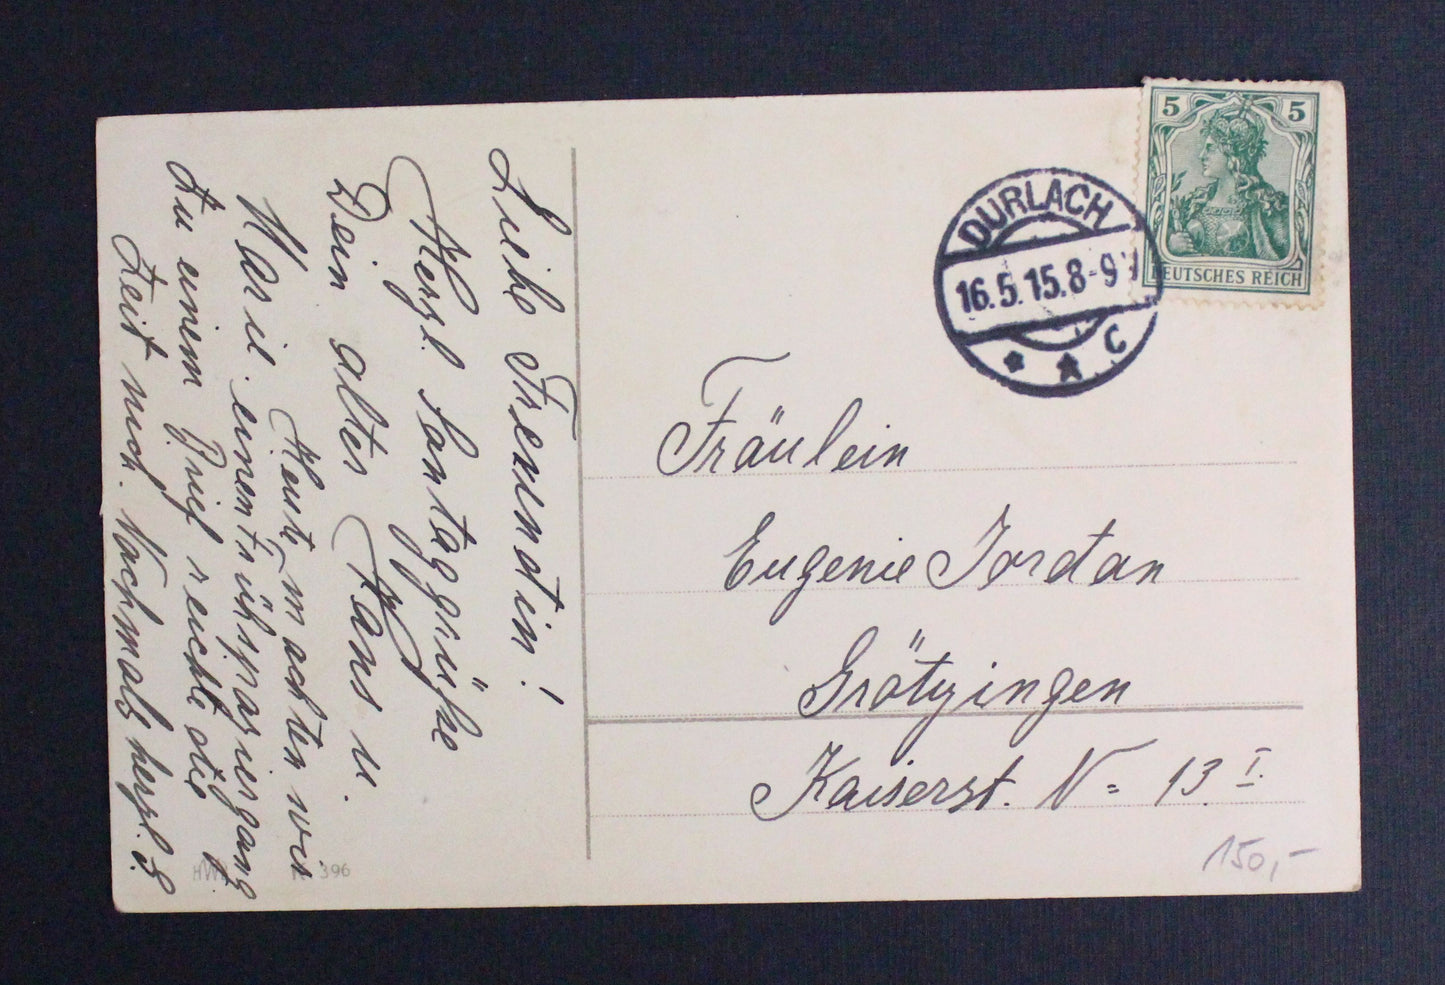 Liebe Freundin!
Herzl. Sonntagsgrüße
Dein alter Hans u.
Marie. Heute machten wir
einen Frühspaziergang
Zu einem Brief reichte die
Zeit nich. Nochmals herzl. G
5 5
DEUTSCHES REICH
DURLACH
16.5.15.8-9
* * C
Fräulein
Eugenie Jordan
Grötzingen
Kaiserst. N= 13 I.
150,-
396